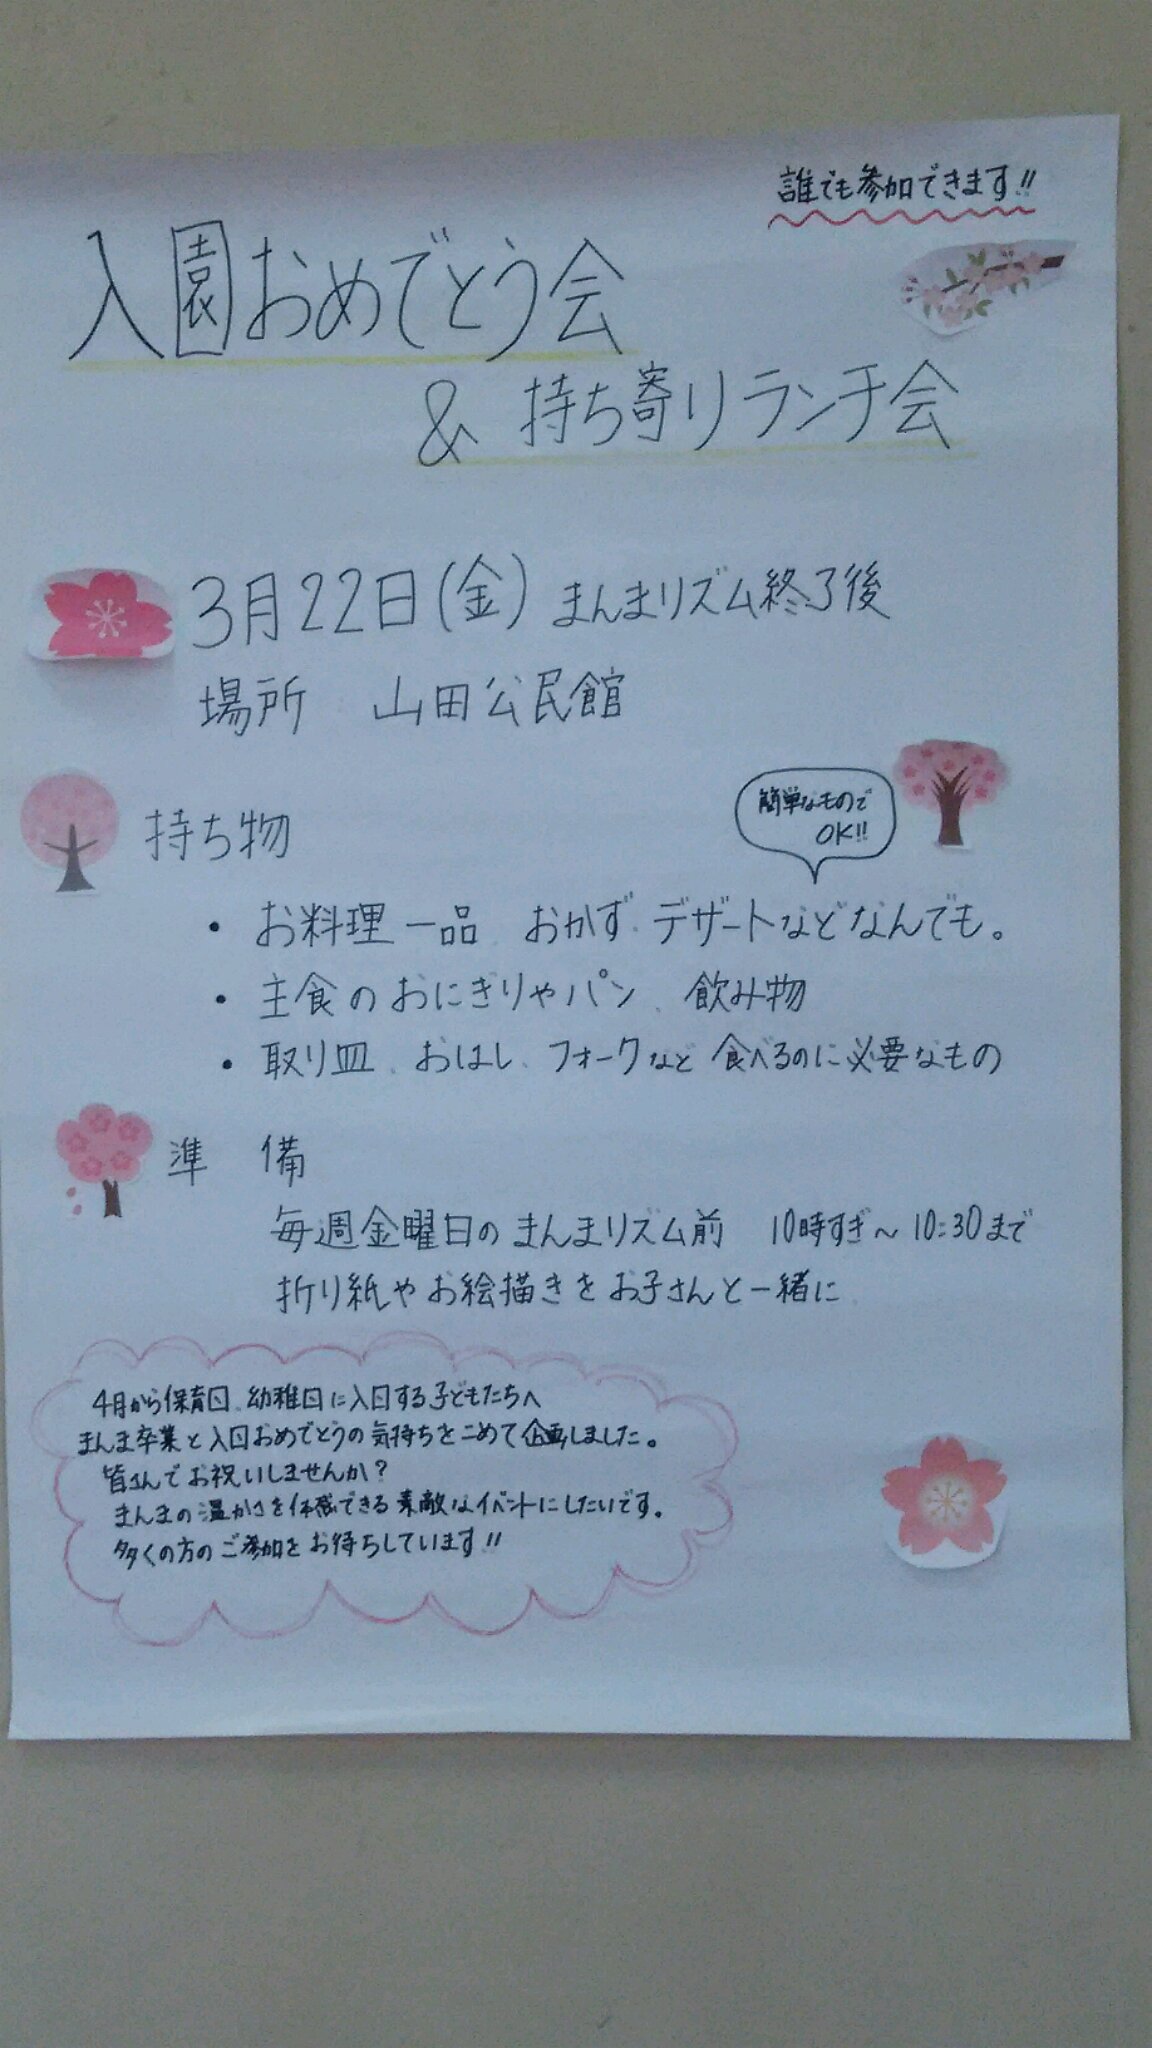 誰でも参加できます!!
入園おめでとう会
& 持ち寄りランチ会
3月22日(金) まんまリズム終了後
場所 山田公民館
持ち物
簡単なもので
OK!!
・ お料理一品、おかず、デザートなどなんでも。
・ 主食のおにぎりやパン、飲み物
・ 取り皿、おはし、フォークなど食べるのに必要なもの
準 備
毎週金曜日のまんまリズム前 10時すぎ~10:30まで
折り紙やお絵描きをお子さんと一緒に
4月から保育口、幼稚口に入口する子どもたちへ
まんま卒業と入口おめでとうの気持ちをこめて企画しました。
皆さんでお祝いしませんか?
まんまの温かさを体感できる素敵なイベントにしたいです。
多くの方のご参加をお待ちしています!!